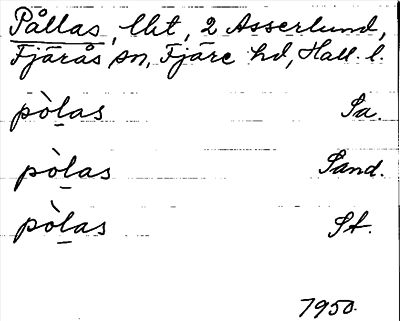 Pållas, lht, 2 Asserlund,
Fjärås sn, Fjäre hd, Hall. l.
pòlas Sa.
pòlas Sand.
pòlas St.
1950.